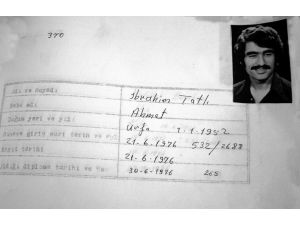 370
Adı ve soyadı İbrahim Tatlı
Baba adı Ahmet
Doğum yeri ve yılı Urfa 1.1.1952
21-6-1976 532/2688
Kayıt tarihi 21-6-1976
diploma tarihi 30-6-1976 265